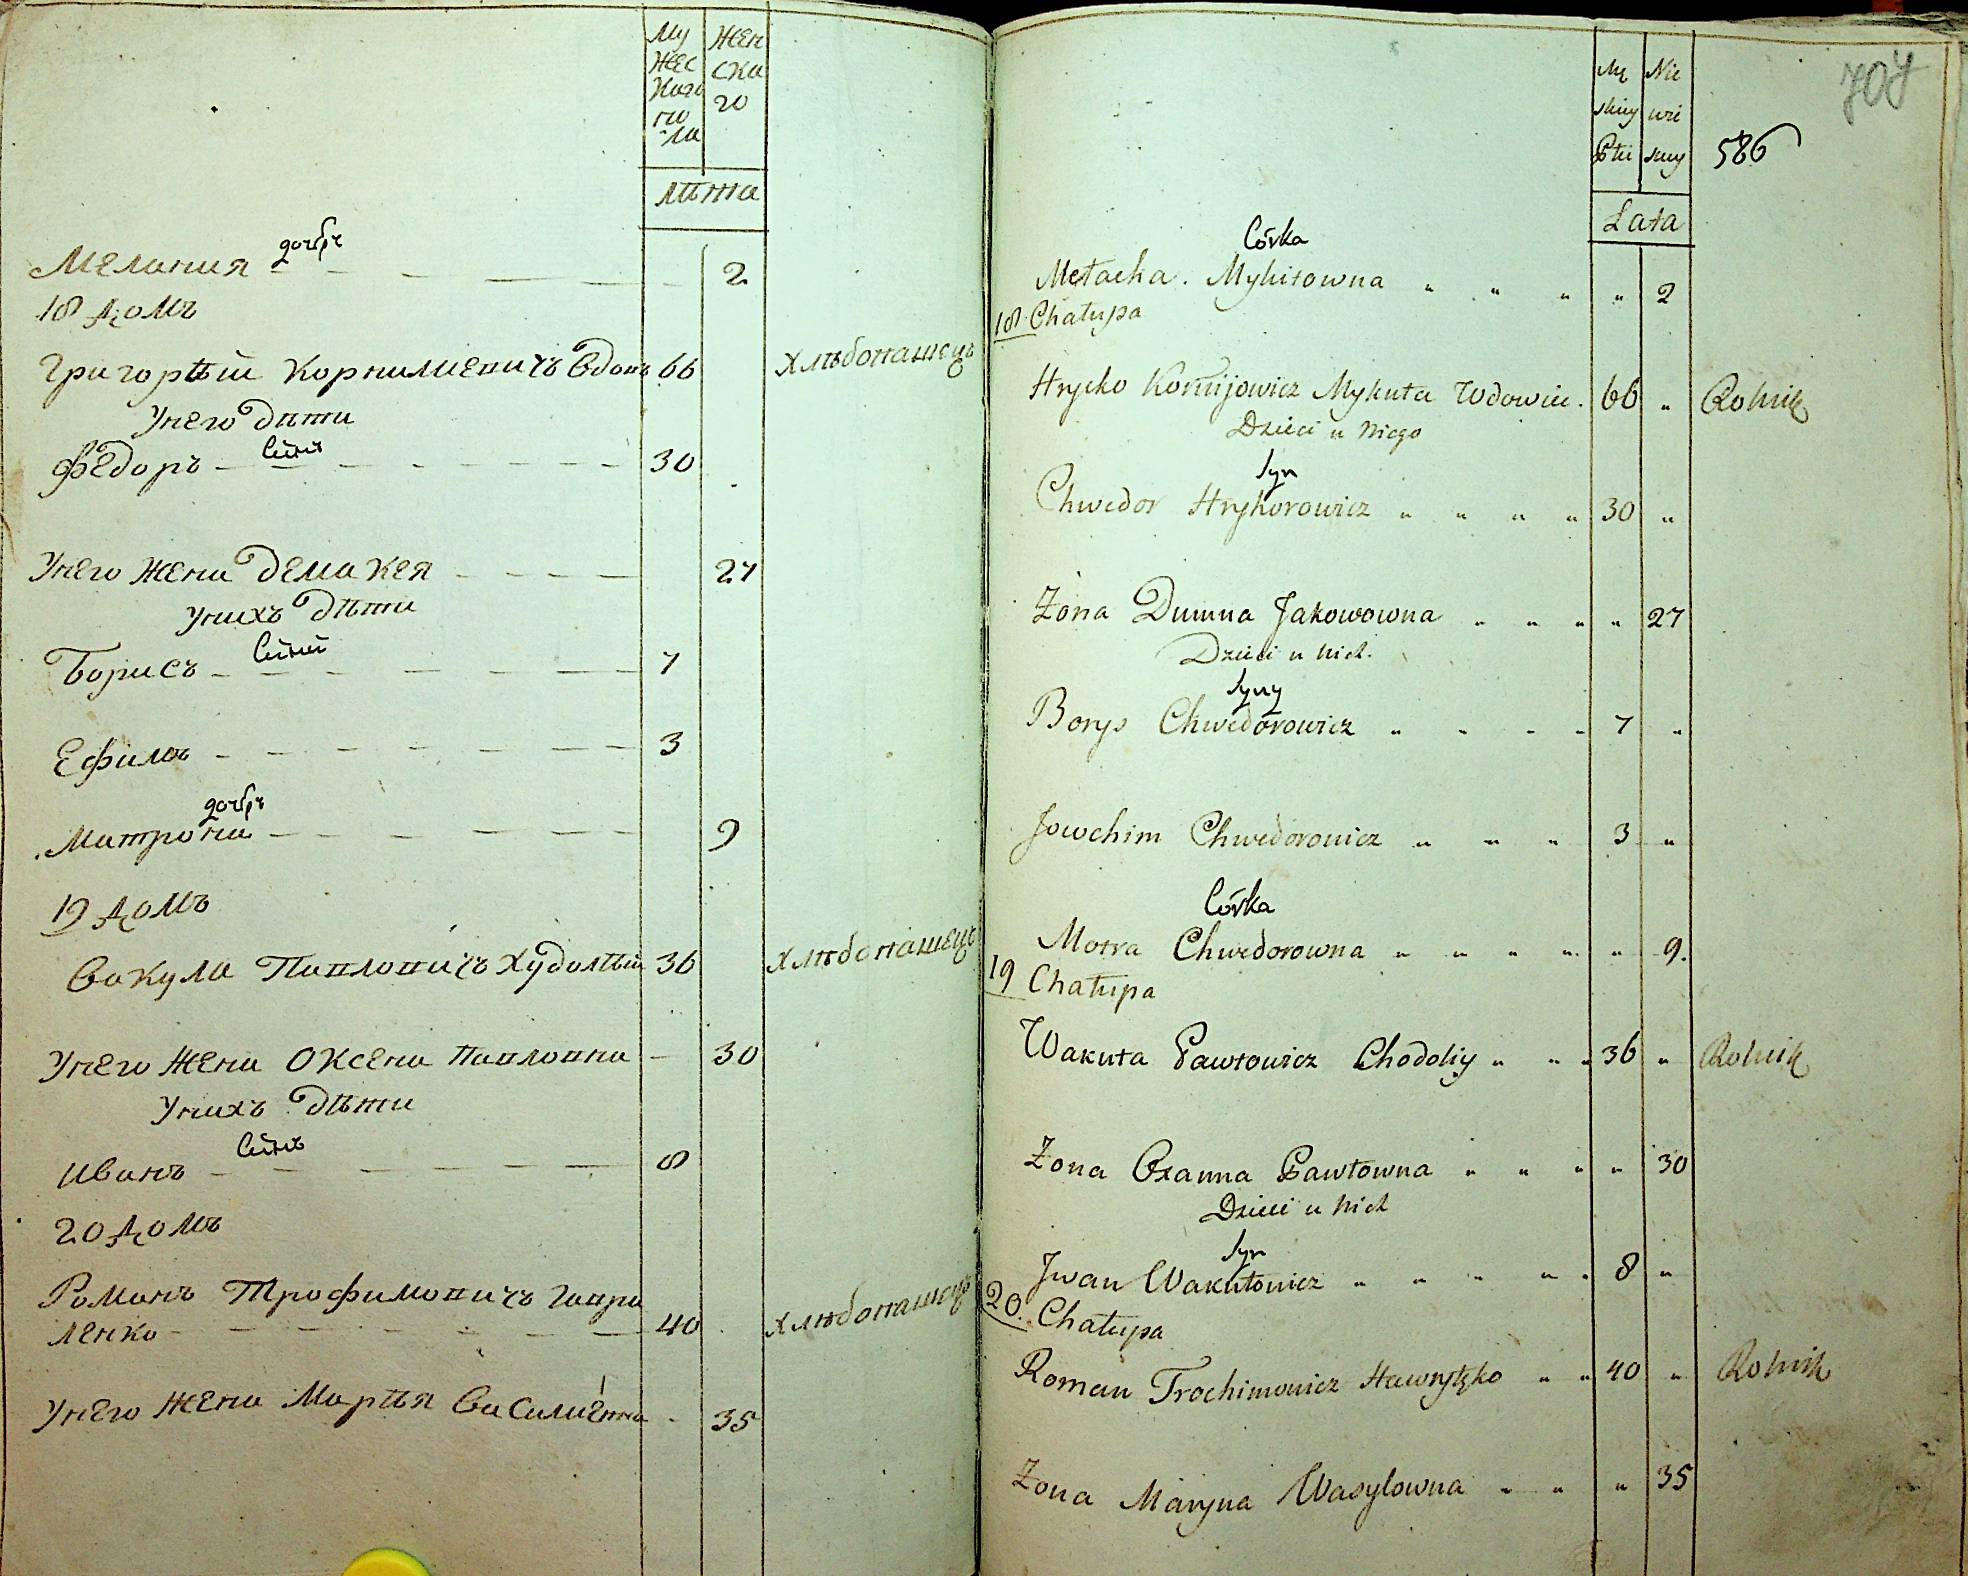 Му
жес
каго
по
ла
жен
ска
го
лѣта
Мелания дочерь 2
18 домъ
Григорѣй Корнилиевичъ вдовъ 66 хлѣбопашецъ
У него дѣти
Федоръ сынъ 30
У него жена Демакея 27
У нихъ дѣти
Борисъ сыны 7
Ефимъ 3
Матрона дочерь 9
19 домъ
Вакула Павловичъ Худолѣй 36 хлѣбопашецъ
У него жена Оксена Павловна 30
У нихъ дѣти
Иванъ сынъ 8
20 домъ
Романъ Трофимовичъ Гаври
ленко 40 хлѣбопашецъ
У него жена Марѣя Василиевна 35
707
586
Mę
skiey
Płci
Nie
wie
sciey
Lata
Córka
Mełacha Mykitowna " " " " 2
18 Chałupa
Hrycko Kornijowicz Mykuła Wdowiec 66 " Rolnik
Dzieci u niego
Syn
Chwedor Hryhorowicz " " " " 30 "
Żona Dumna Jakowowna " " " " 27
Dzieci u nich
Syny
Borys Chwedorowicz " " " " 7 "
Jowchim Chwedorowicz " " " 3 "
Córka
Motra Chwedorowna " " " " " 9.
19 Chałupa
Wakuła Pawłowicz Chodoliy " " " 36 " Rolnik
Żona Oxanna Pawłowna " " " " 30
Dzieci u nich
Syn
Jwan Wakułowicz " " " " " 8 "
20. Chałupa
Roman Trochimowicz Hawryłko " " 40 " Rolnik
Żona Maryna Wasylowna " " " 35